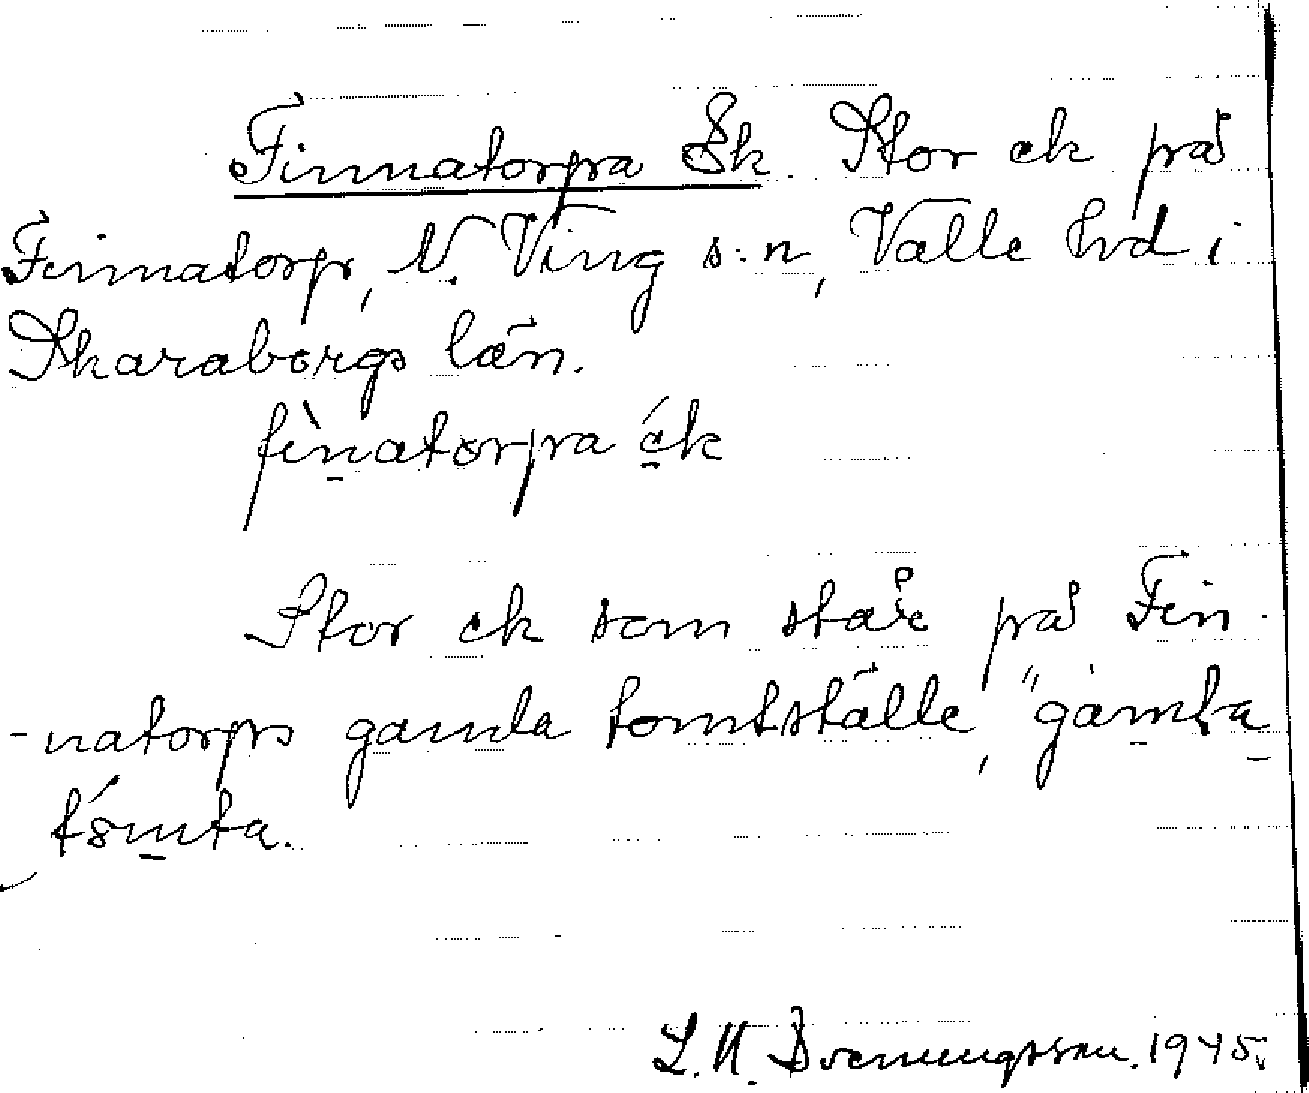 Finnatorpa Ek. Stor ek på
Finnatorp, N. Ving s:n, Valle hd i
Skaraborgs län.
fìnatorpa ék
Stor ek som står på Fin-
-natorps gamla tomtställe, "gàmla
tómta.
L. N. Svenungsson. 1945.